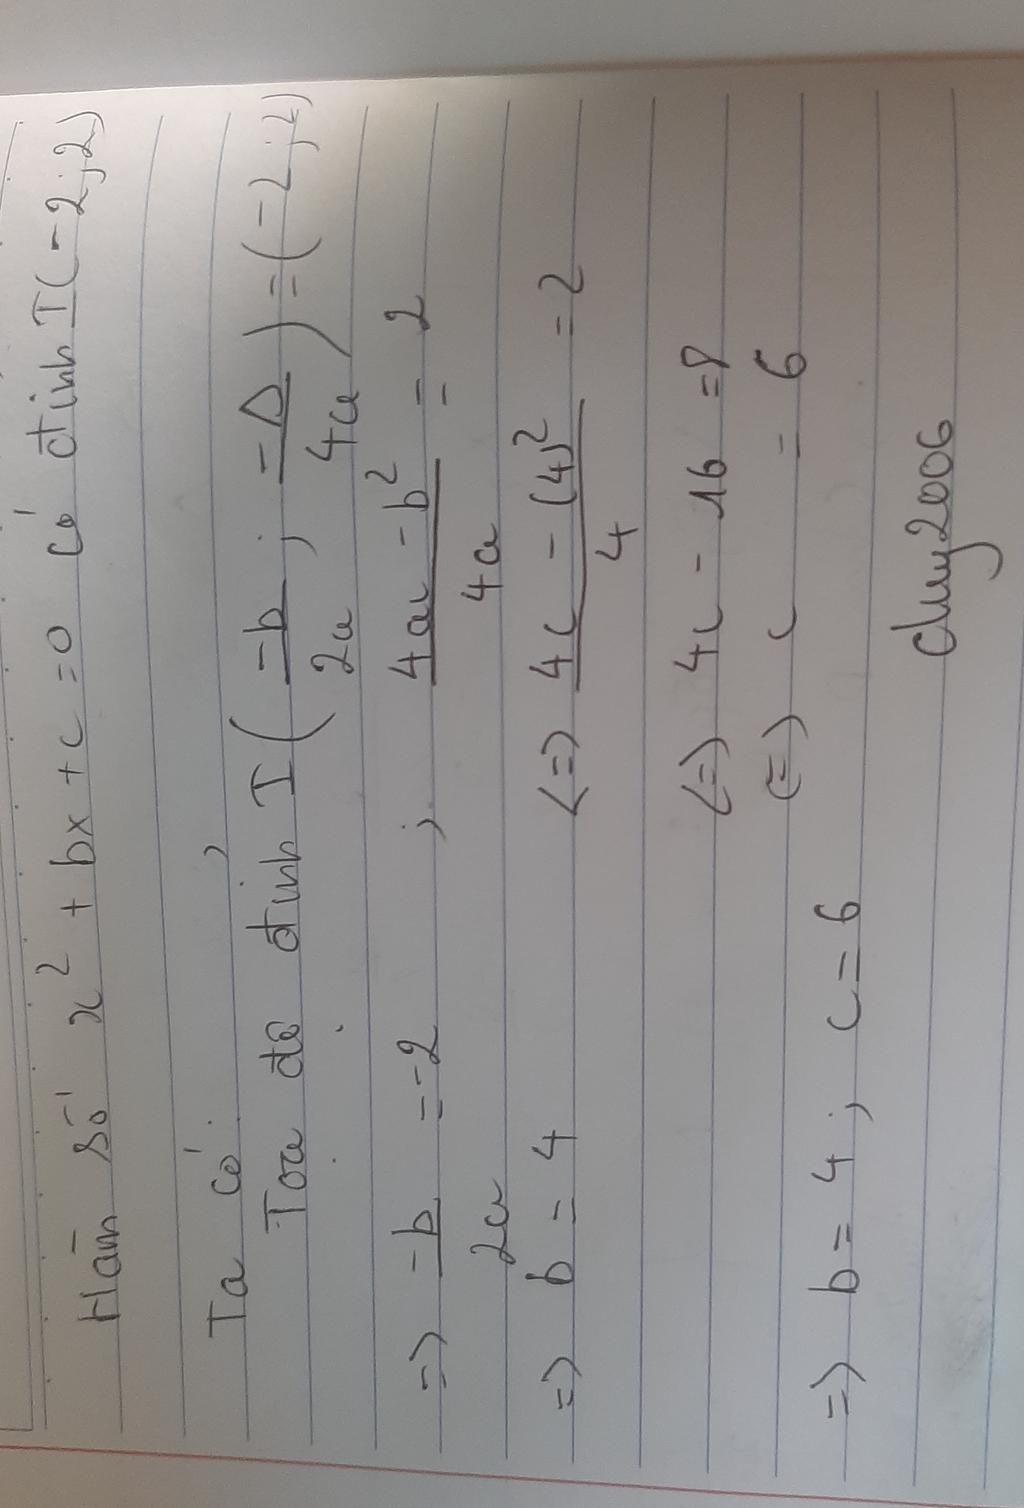 Hàm số x² + bx + c = 0 có đỉnh I(-2;2)
Ta có:
Toạ độ đỉnh I(-b/2a; -Δ/4a) = (-2;2)
=> -b/2a = -2 ; 4ac - b²/4a = 2
=> b = 4 <=> 4c - (4)²/4 = 2
<=> 4c - 16 = 8
<=> c = 6
=> b = 4; c = 6
chuy2006